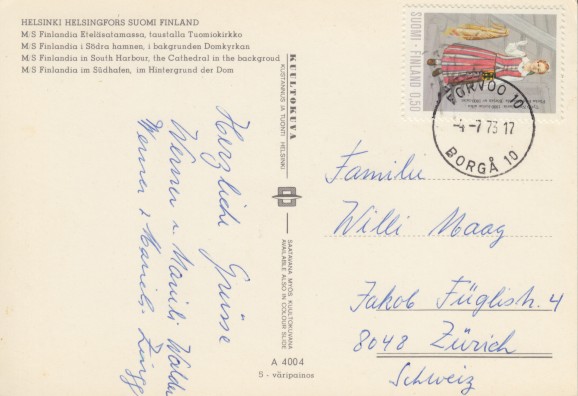 HELSINKI HELSINGFORS SUOMI FINLAND
M/S Finlandia Eteläsatamassa, taustalla Tuomiokirkko
M/S Finlandia i Södra hamnen, i bakgrunden Domkyrkan
M/S Finlandia in South Harbour, the Cathedral in the backgroud
M/S Finlandia im Südhafen, im Hintergrund der Dom
Herzliche Grüsse
Werner u. Marieli Walder
Werner & Marieli
KUULTOKUVA
KUSTANNUS JA TUONTI HELSINKI
SAATAVANA MYÖS KUULTOKUVANA
AVAILABLE ALSO IN COLOUR SLIDE
A 4004
5 - väripainos
SUOMI - FINLAND 0,50
PORVOO 10
-4-7 73 17
BORGÅ 10
Familie
Willi Maag
Jakob Füglistr. 4
8048 Zürich
Schweiz